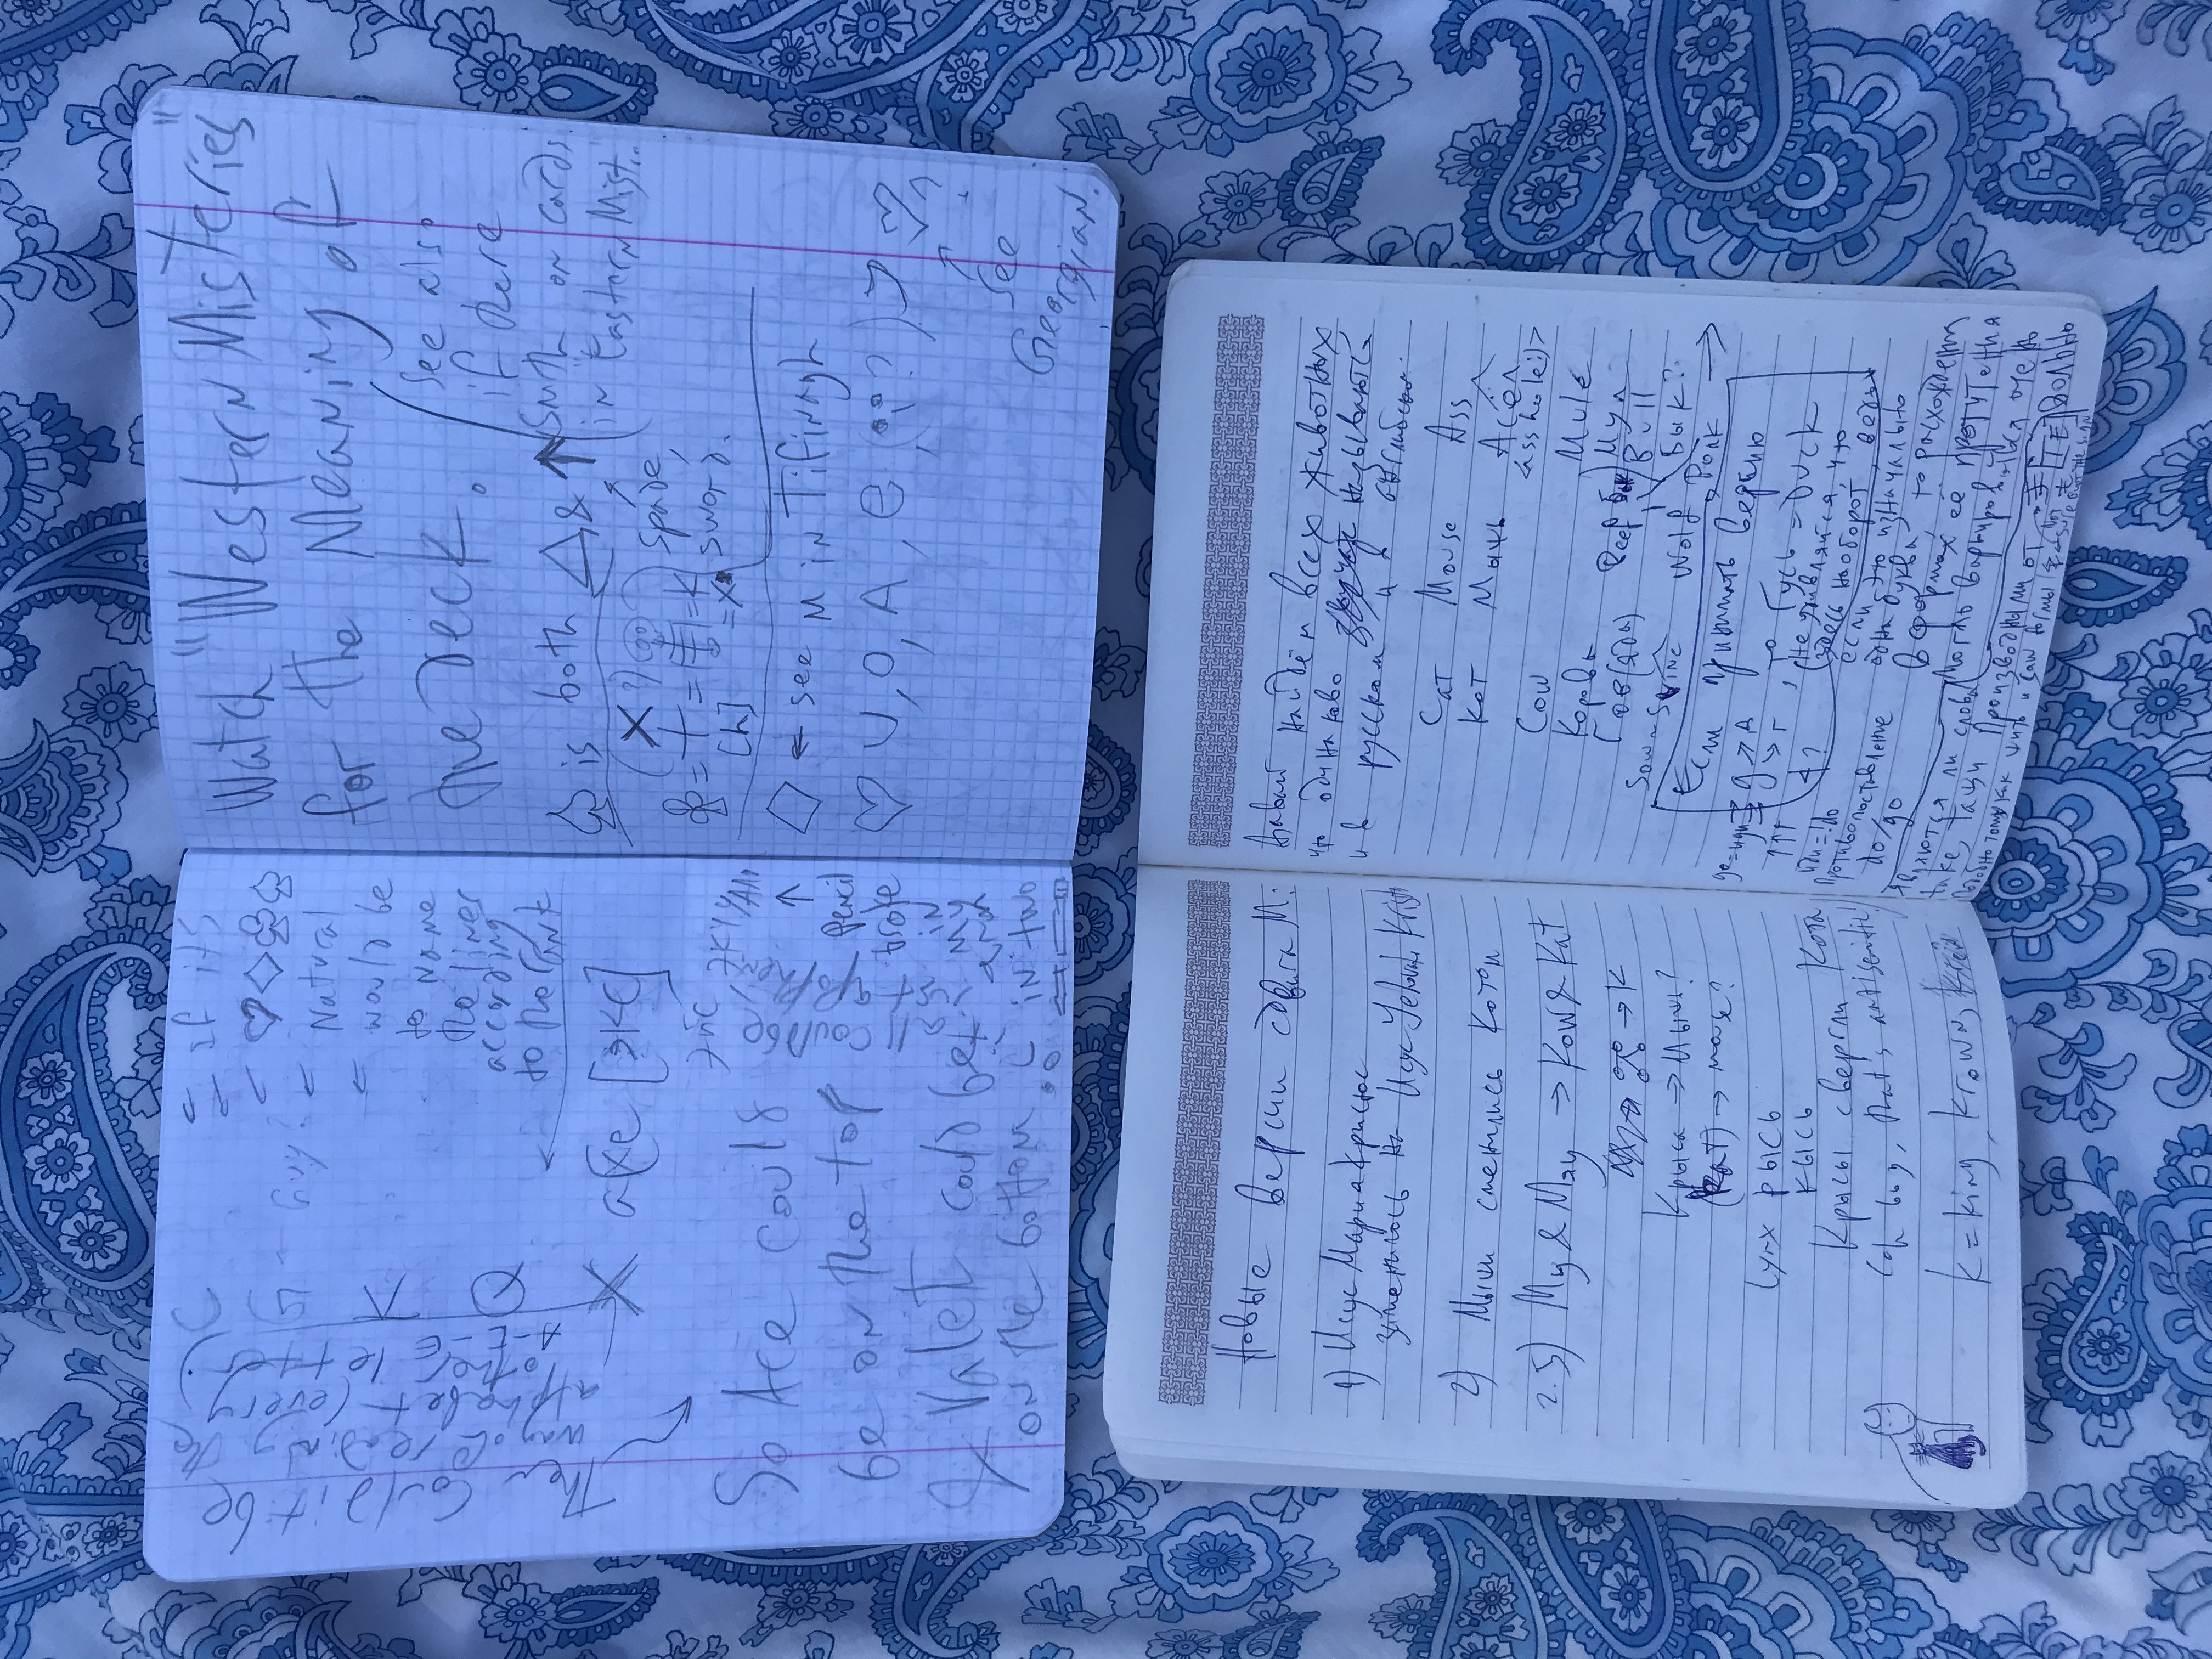 Then Could it be
way of reading the
alphabet (every
other letter)
A-E-E
C
G - Guy?
K
Q
X axe
← if its
♡♢♧♤
Natural
would be
to name
the lines
according
to the rank
So Ace could
be on the top
& Valet could be
on the bottom
it all could be
just apophenia
Pencil
broke
in
my
in two
Watch "Western Misteries"
for the Meaning of
the deck.
See also
if there
Smth on cards
in "Eastern Mist..
♤ is both △ & ↑
spade,
sword.
(X?)
♧ = † = = K
[h] = X
◇ ← see M in Tifinagh
♡ U, O, A, e, (?) → ♡
see
Georgian
Новые версии сдвига М:
1) Исус Мариа Кристос
заменилось на Исус Jehovah Krist
2) Мыши сменились Котом
2.5) Му & Мяу → Kow & Kat
→ K
Крыса → Мышь?
(Rat) → mouse?
Lynx рысь
кысь
Крысы свергли Кота
that's antisemitic!
K = King, Krown,
Давай найдём всех животных,
что одинаково называются
и в русском и в английском.
Cat Mouse Ass
Кот Мышь Асёл
<asshole:)>
Cow
Корова
Гов(яда)
Mule
Мул
Beef Bull
Бык?
Sow ~ Swine
Wolf
Волк →
Если принимать версию
go=иди g → д
→ г, то Гусь = Duck
↑↑↑
4?
(не удивляйся, что
здесь наоборот, ведь
если это изначально
одна буква, то расхождения
в формах её прочтения
могли варьироваться очень
иди = !do
Противопоставление
do/go
Являются ли слова
take, тащи производными от
Подобно тому как